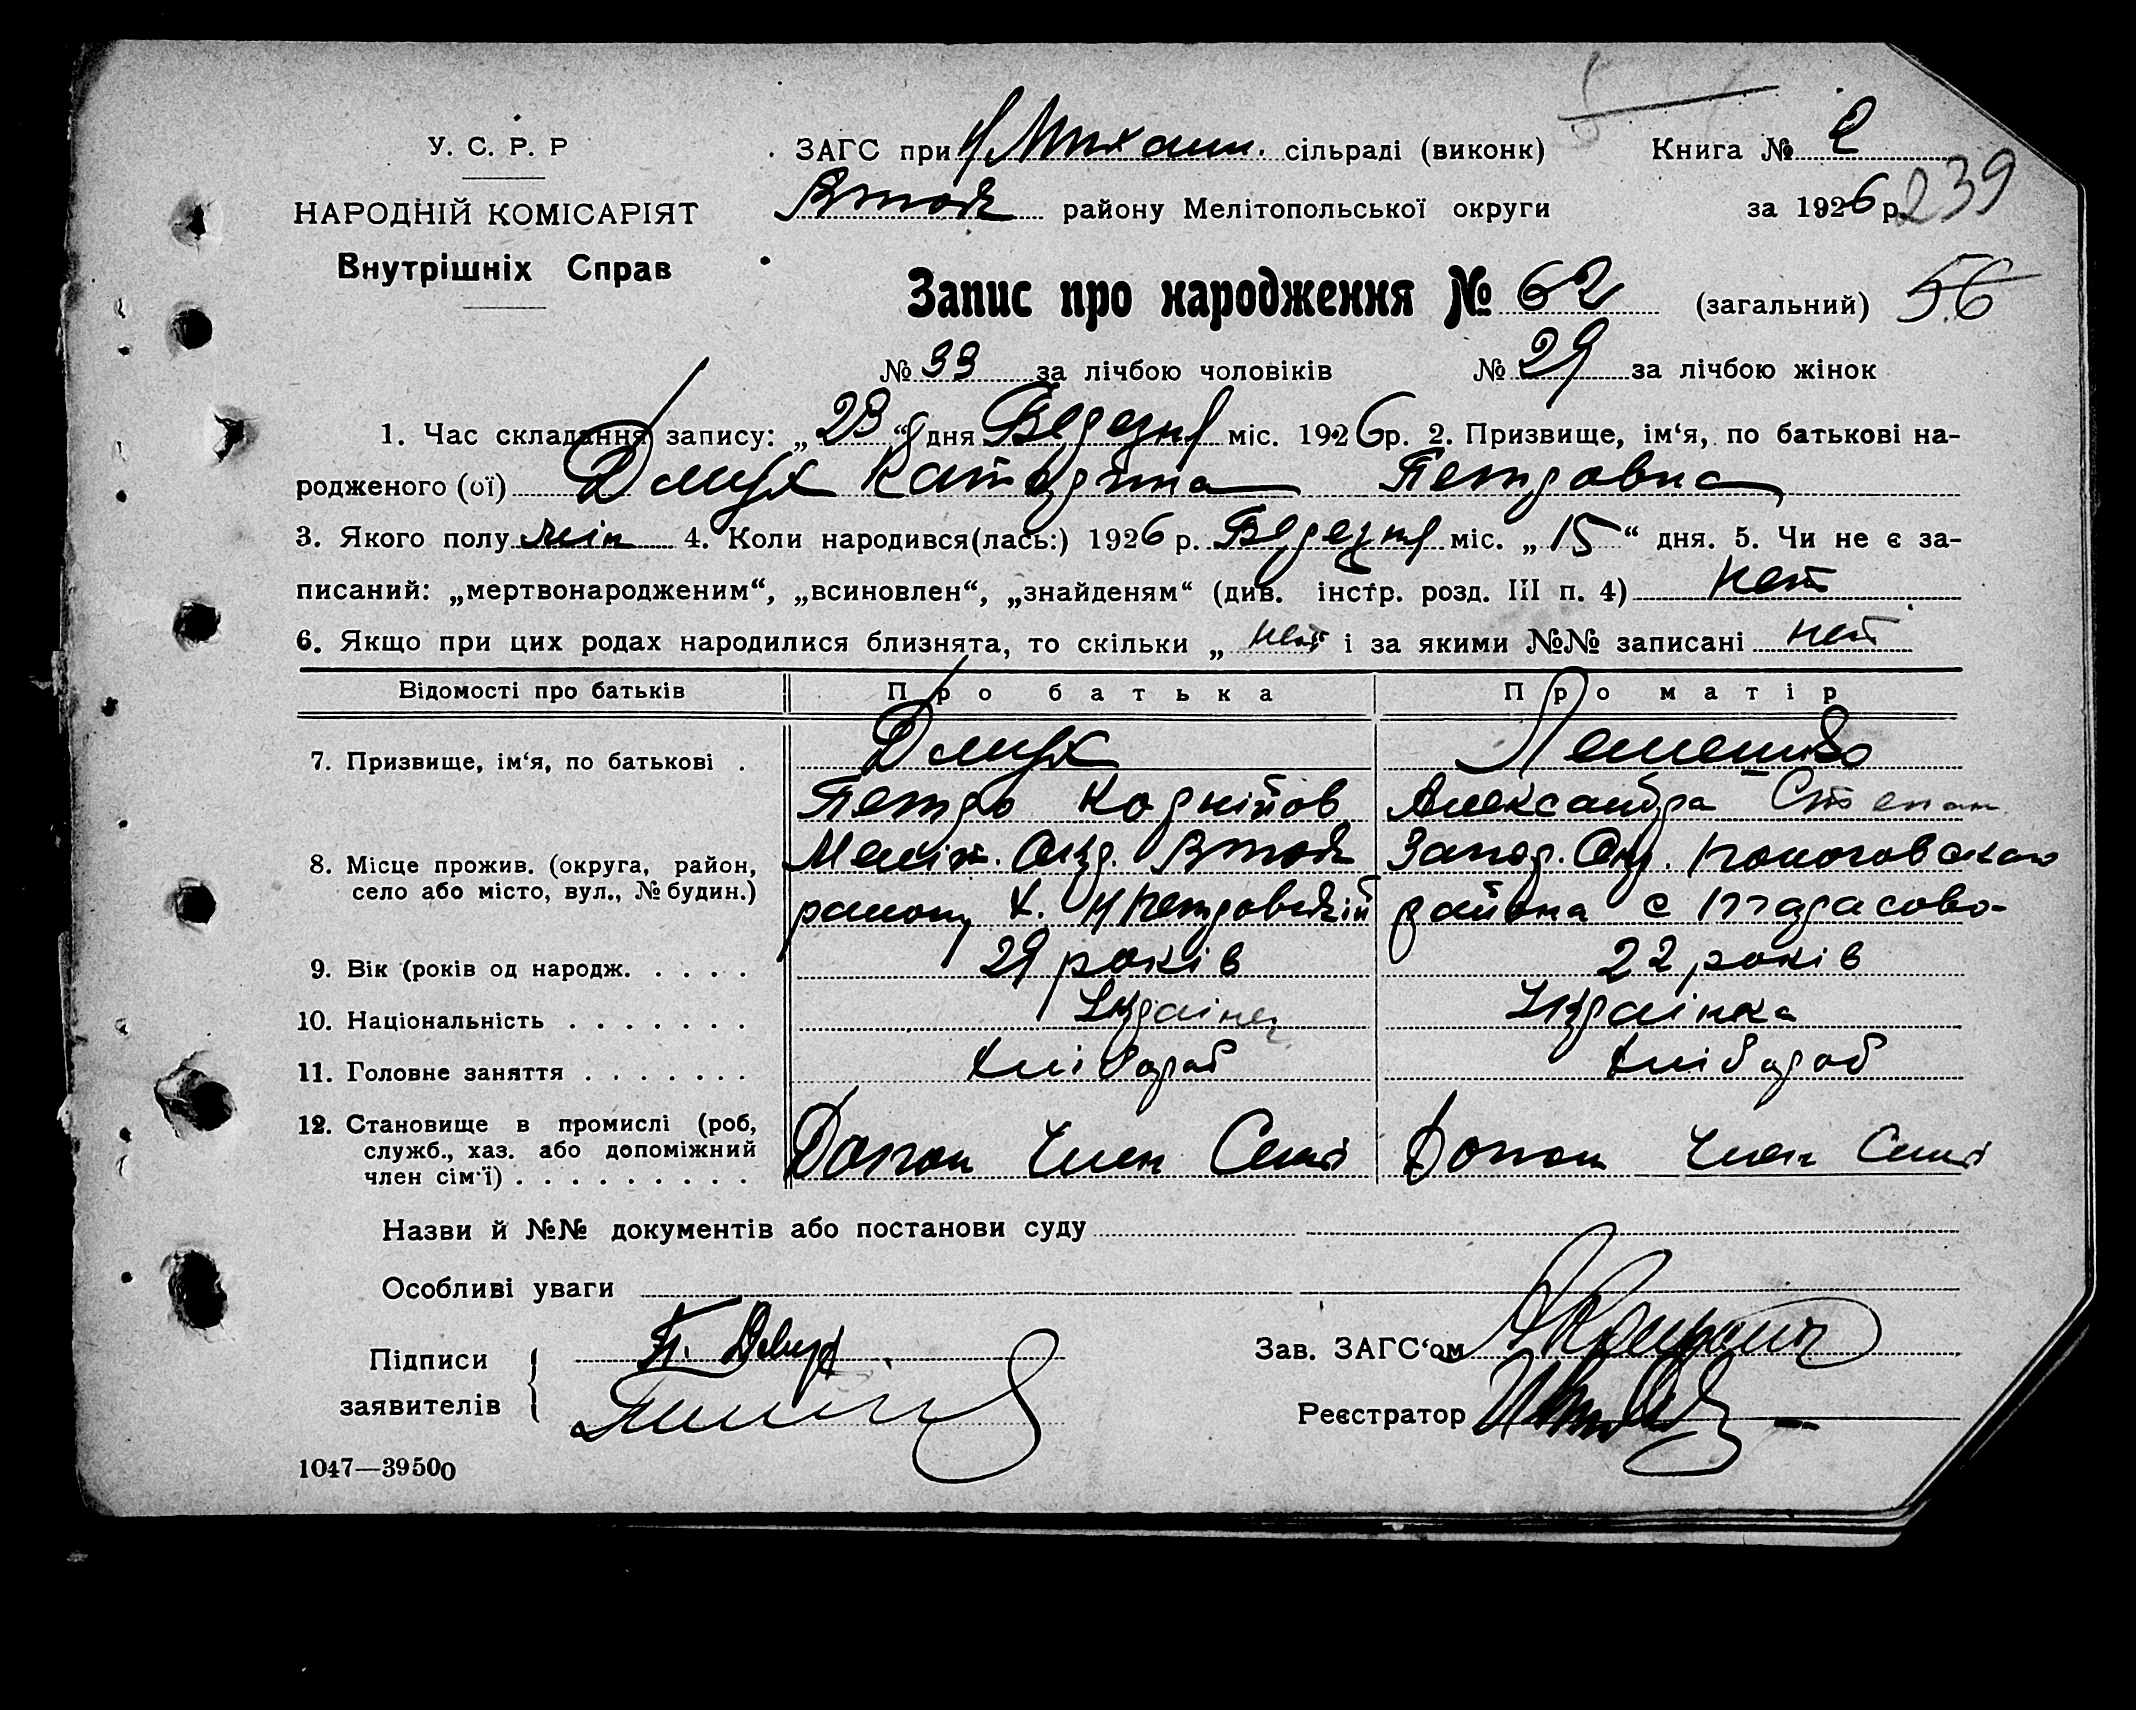 У. С. Р. Р
НАРОДНІЙ КОМІСАРІЯТ
Внутрішніх Справ
ЗАГС при Н Михайл. сільраді (виконк)
району Мелітопольської округи
Книга № 2
за 1926 р.
239
Запис про народження № 62 (загальний) 56
№ 33 за лічбою чоловіків № 29 за лічбою жінок
1. Час складання запису: „23“ дня Березня міс. 1926 р. 2. Призвище, ім‘я, по батькові на-
родженого (ої) Катерина Петровна
3. Якого полу жін 4. Коли народився(лась:) 1926 р. Березня міс. „15“ дня. 5. Чи не є за-
писаний: „мертвонародженим“, „всиновлен“, „знайденям“ (див. інстр. розд. III п. 4) нет
6. Якщо при цих родах народилися близнята, то скільки „ нет “ і за якими №№ записані нет
Відомості про батьків Про батька Про матір
7. Призвище, ім‘я, по батькові .
Петро Корнійов Александра Степан
8. Місце прожив. (округа, район,
село або місто, вул., № будин.)
Меліт. Окр. Запор. Окр. Пологовского
району х. Н Петровській района с Тарасово-
9. Вік (років од народж. . . . . 29 років 22 років
10. Національність . . . . . . . Українец Українка
11. Головне заняття . . . . . . . Хлібороб Хлібороб
12. Становище в промислі (роб,
служб., хаз. або допоміжний
член сім‘ї) . . . . . . . . . Допом Член Семї Допом Член Семї
Назви й №№ документів або постанови суду
Особливі уваги
Підписи
заявителів
Зав. ЗАГС‘ом
Реєстратор
1047—39500